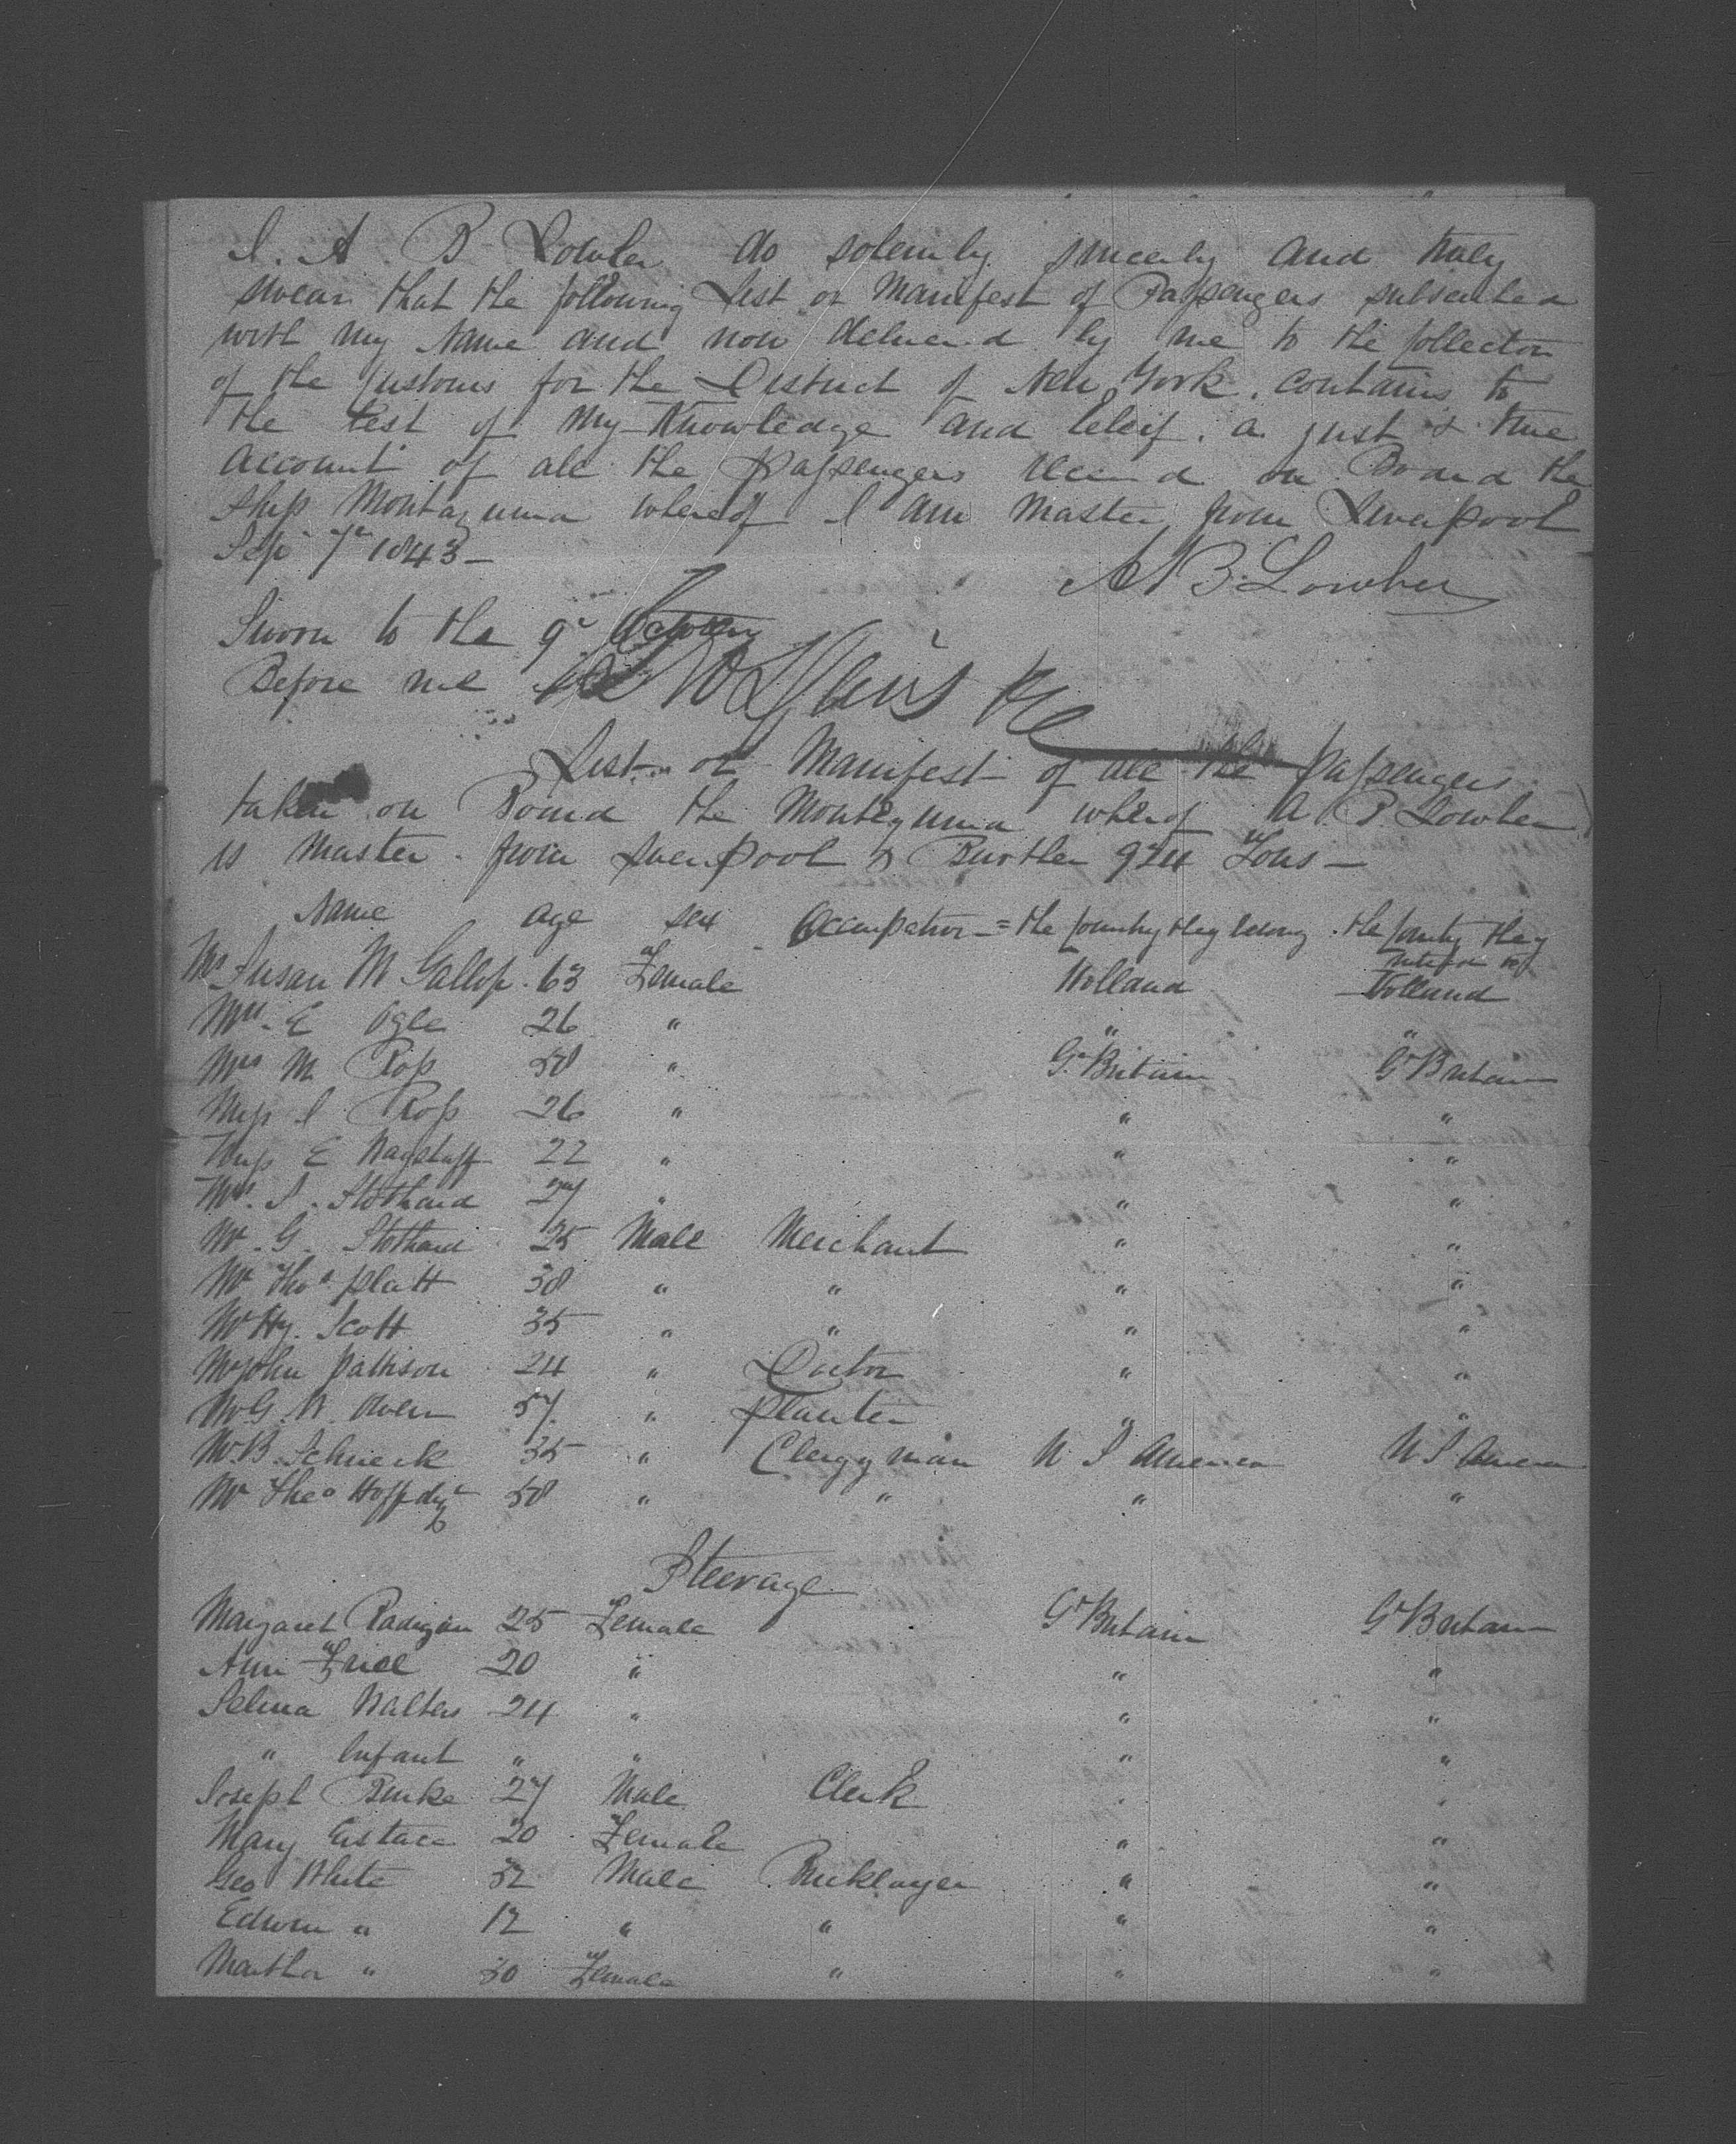 I. A. B. Lowber do solemnly sincerely and truly
swear that the following List or Manifest of Passengers subscribed
with my Name and now delivered by me to the Collector
of the Customs for the District of New York. contains to
the best of my Knowledge and beleif. a just & true
Account of all the passengers received on Board the
Ship Montazuma whereof I am Master from Liverpool
Sep 7th 1843 –
A B Lowber
Sworn to the 9th October
Before me
List or Manifest of all the passengers
taken on Board the Montezuma whereof A. B. Lowber
is Master. from Liverpool Burthen 924 Tons –
Name age sex Occupation = the Country they belong. the Country they
intend
Mrs Susan M Gallop. 63 Female Holland Holland
Mrs. E Ogle 26 " " "
Mrs M Ross 58 " Gt Britain Gt Britain
Miss I Ross 26 " " "
Miss E Wagstaff 22 " " "
Mrs. S. Stothard 27 " " "
Mr. G. Stothard 25 Male Merchant " "
Mr Thos Platt 38 " " " "
Mr Hy. Scott 35 " " " "
Mr John Pattison 24 " Doctor " "
Mr G. W. Owen 57 " Planter " "
Mr. B. Schneck 35 " Clergyman U S America U S America
Mr Theo 58 " " " "
Steerage
Margaret Radigan 25 Female Gt Britain Gt Britain
Ann Friel 20 " " "
Selina Walters 24 " " "
" Infant " " " "
Joseph Burke 27 Male Clerk " "
Mary Eustace 20 Female " "
Geo White 32 Male Bricklayer " "
Edwin " 12 " " " "
Martha " 30 Female " " "